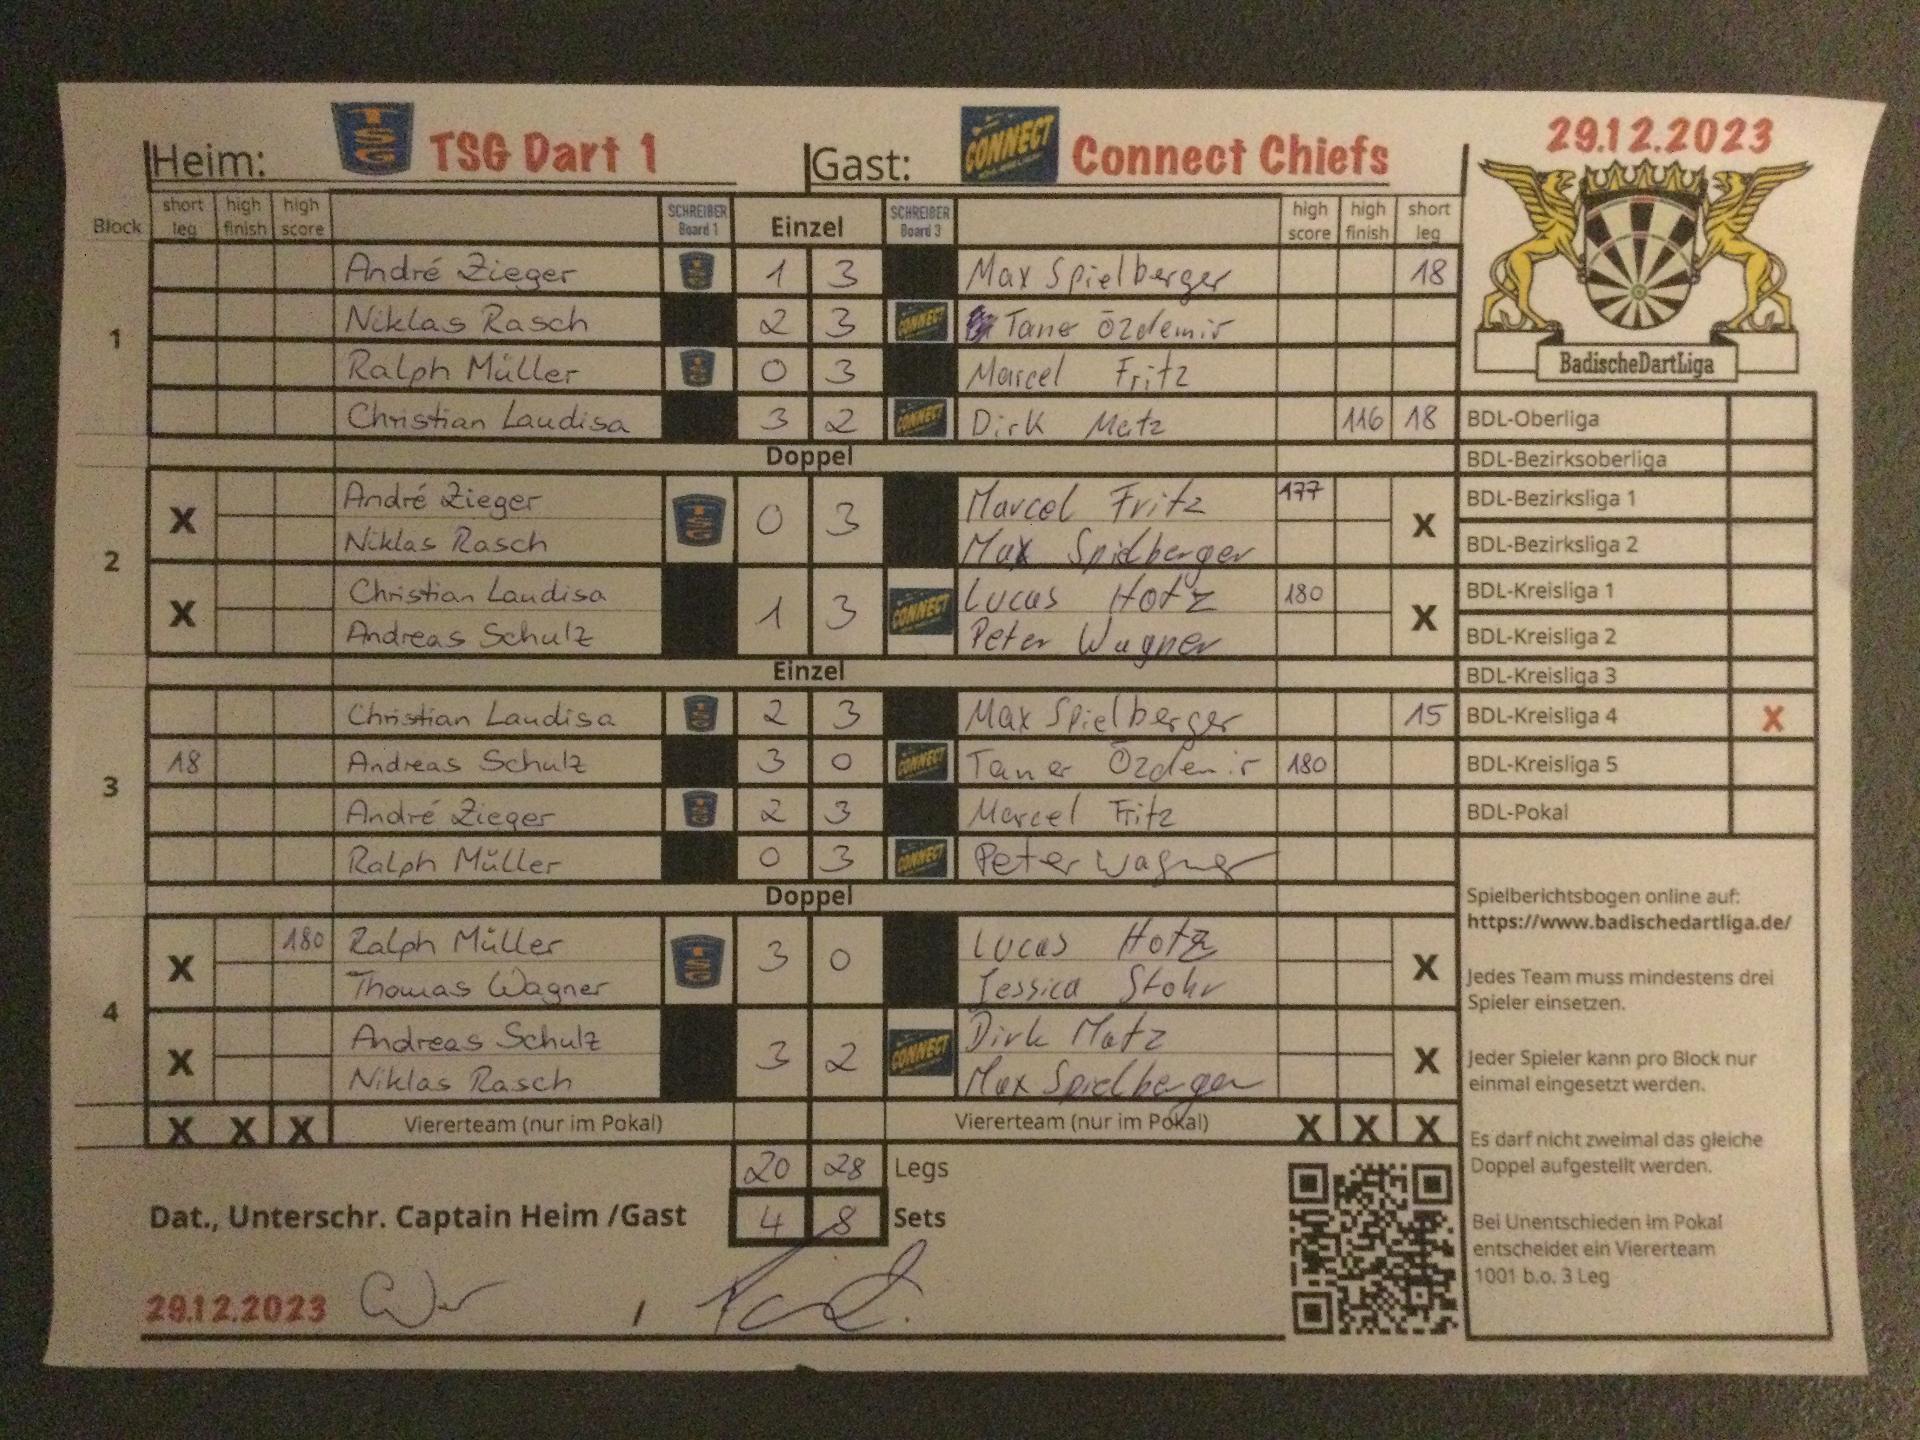 Heim: TSG TSG Dart 1 Gast: CONNECT Connect Chiefs 29.12.2023
Block short leg high finish high score SCHREIBER Board 1 Einzel SCHREIBER Board 3 high score high finish short leg
1
André Zieger TSG 1 3 Max Spielberger 18
Niklas Rasch 2 3 CONNECT Taner Özdemir
Ralph Müller TSG 0 3 Marcel Fritz
Christian Laudisa 3 2 CONNECT Dirk Matz 116 18
Doppel
2
X André Zieger TSG 0 3 Marcel Fritz 177 X
Niklas Rasch Max Spielberger
X Christian Laudisa 1 3 CONNECT Lucas Hotz 180 X
Andreas Schulz Peter Wagner
Einzel
3
Christian Laudisa TSG 2 3 Max Spielberger 15
18 Andreas Schulz 3 0 CONNECT Taner Özdemir 180
André Zieger TSG 2 3 Marcel Fritz
Ralph Müller 0 3 CONNECT Peter Wagner
Doppel
4
X 180 Ralph Müller TSG 3 0 Lucas Hotz X
Thomas Wagner Jessica Stohr
X Andreas Schulz 3 2 CONNECT Dirk Matz X
Niklas Rasch Max Spielberger
X X X Viererteam (nur im Pokal) Viererteam (nur im Pokal) X X X
20 28 Legs
Dat., Unterschr. Captain Heim /Gast 4 8 Sets
29.12.2023 ,
BadischeDartLiga
BDL-Oberliga
BDL-Bezirksoberliga
BDL-Bezirksliga 1
BDL-Bezirksliga 2
BDL-Kreisliga 1
BDL-Kreisliga 2
BDL-Kreisliga 3
BDL-Kreisliga 4 X
BDL-Kreisliga 5
BDL-Pokal
Spielberichtsbogen online auf:
https://www.badischedartliga.de/
Jedes Team muss mindestens drei
Spieler einsetzen.
Jeder Spieler kann pro Block nur
einmal eingesetzt werden.
Es darf nicht zweimal das gleiche
Doppel aufgestellt werden.
Bei Unentschieden im Pokal
entscheidet ein Viererteam
1001 b.o. 3 Leg